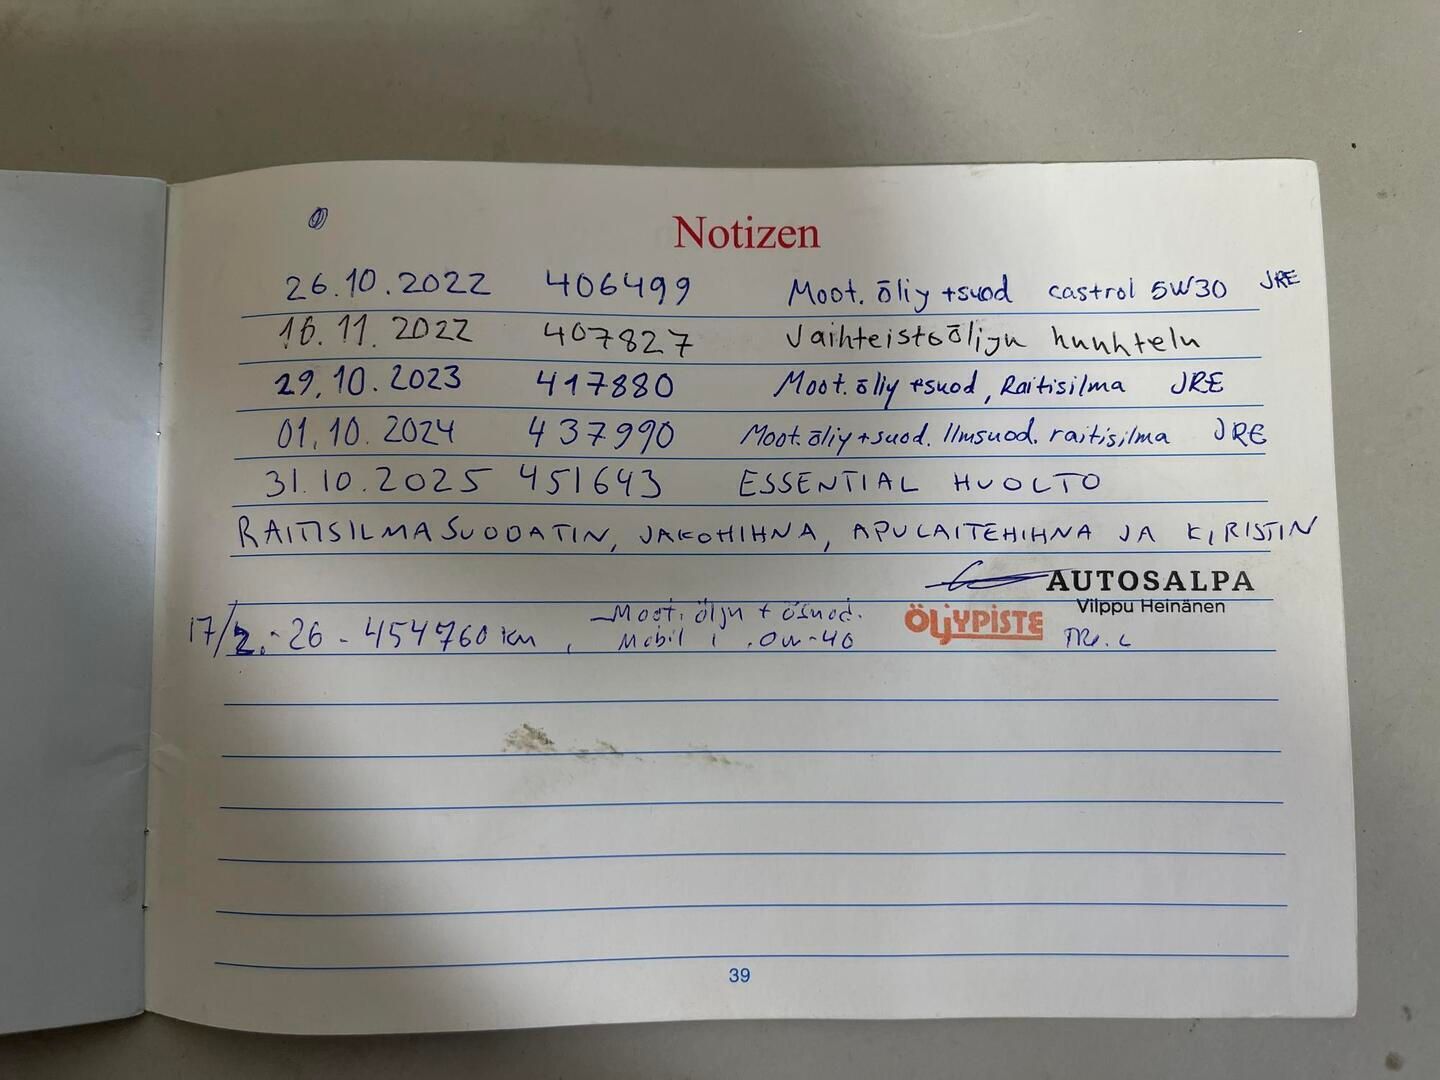 Notizen
26.10.2022 406499 Moot. öliy +suod castrol 5W30 JRE
16.11.2022 407827 Vaihteistoöljyn huuhtelu
29.10.2023 417880 Moot. öliy +suod, Raitisilma JRE
01.10.2024 437990 Moot. öliy+suod. Ilmsuod. raitisilma JRE
31.10.2025 451643 ESSENTIAL HUOLTO
RAITISILMASUODATIN, JAKOHIHNA, APULAITEHIHNA JA KIRISTIN
AUTOSALPA
Vilppu Heinänen
Moot. öljyn + ösuod.
ÖLJYPISTE
17/2.-26 - 454760 km, Mobil 1 0w-40
39